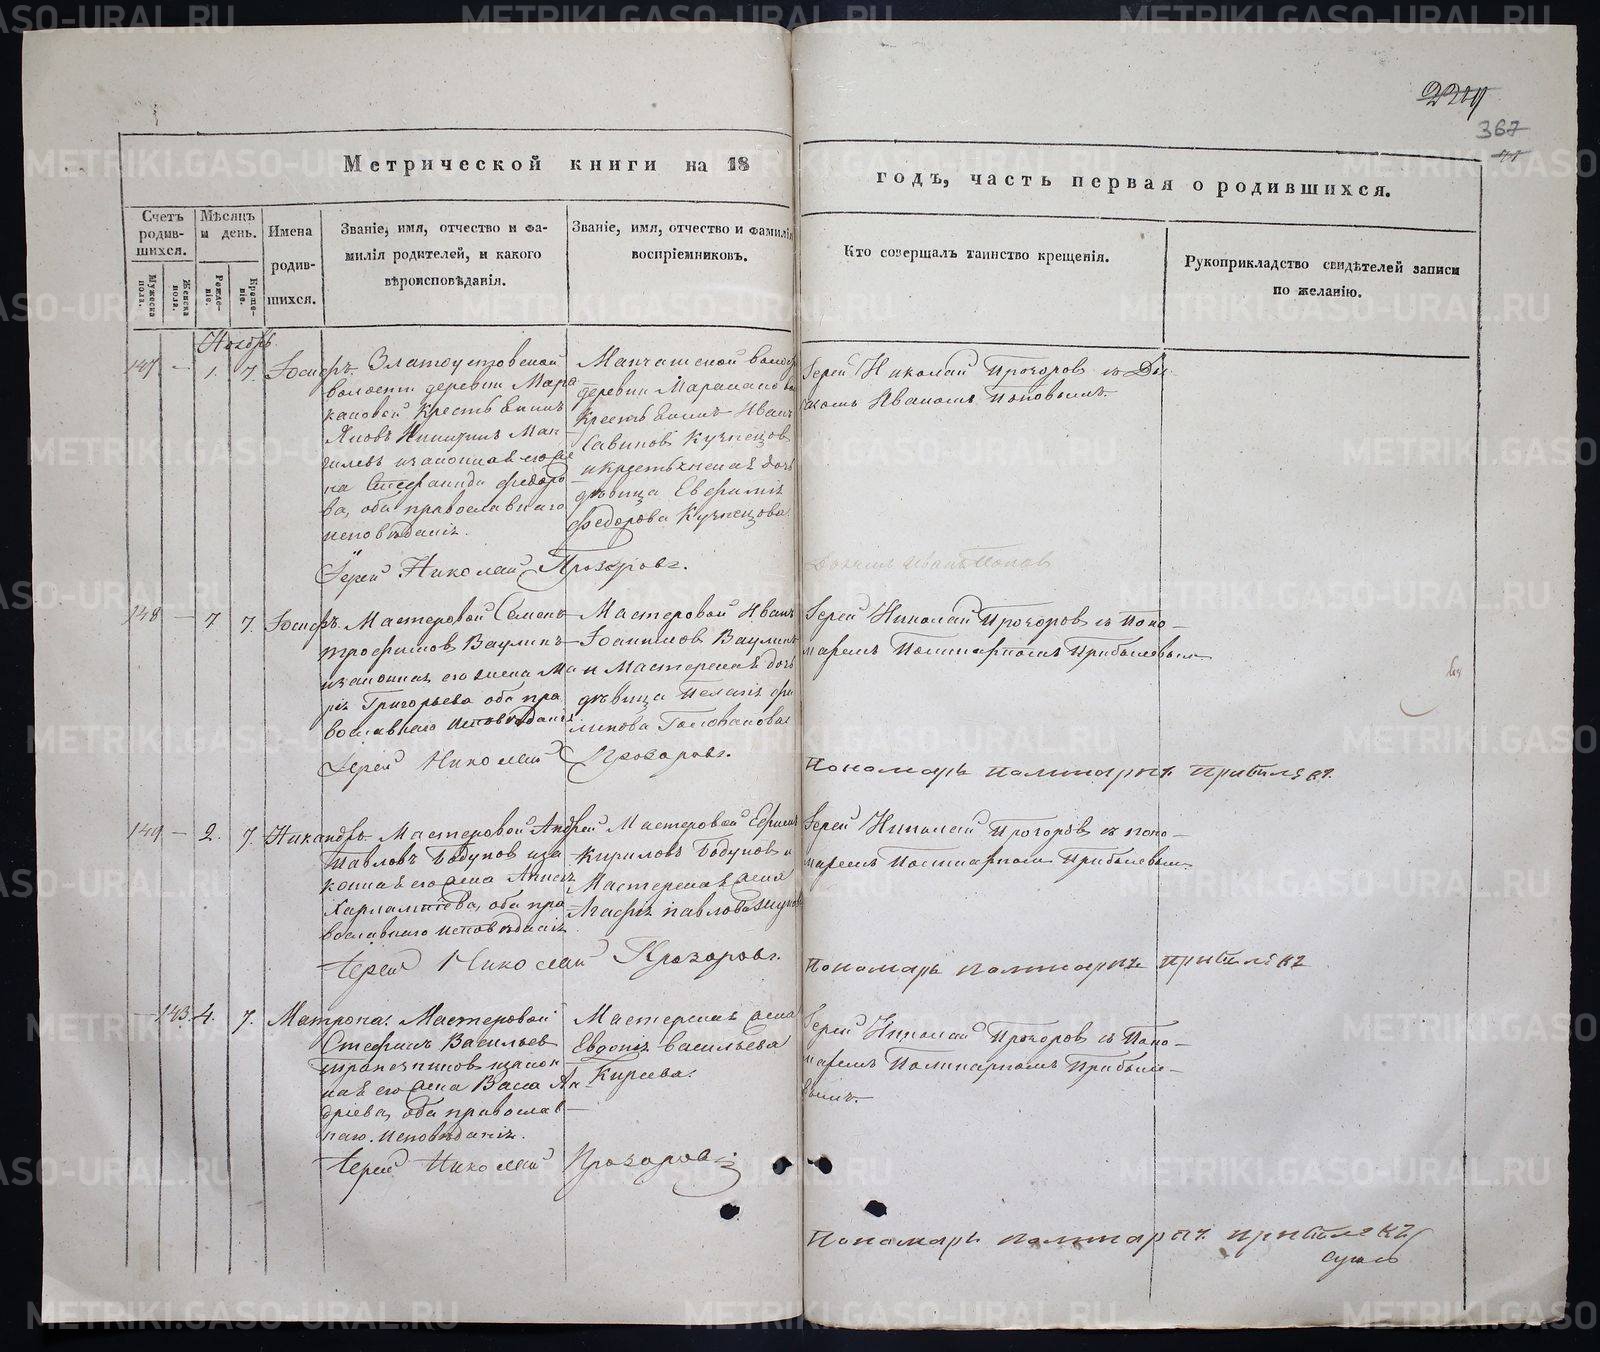 367
Метрической книги на 18
годъ, часть первая о родившихся.
Счетъ родив-шихся.
Мужеска пола.
Женска пола.
Мѣсяцъ и день.
Рожде-ніе.
Креще-ніе.
Имена родив-шихся.
Званіе, имя, отчество и фа-
милія родителей, и какого
вѣроисповѣданія.
Званіе, имя, отчество и фамилія
воспріемниковъ.
Кто совершалъ таинство крещенія.
Рукоприкладство свидѣтелей записи
по желанію.
Ноябрь
147 — 1. 7. Іосифъ. Златоустовской
волости деревни Мара
кановой Крестьянинъ
Яковъ Никитинъ Ман-
законная его
на Стефанида Федоро
ва, оба православнаго
исповѣданія.
деревни
Крестьянинъ Иванъ
Савиновъ Кузнецовъ
дочь
дѣвица Евфимія
Федорова Кузнецова
Іерей Николай Прозоровъ съ Дья
кономъ Иваномъ Поповымъ.
Іерей Николай Прозоровъ.
Дьяконъ Иванъ Поповъ
148 — 7 7. Іосифъ. Мастеровой Семенъ
Трофимовъ Ваулинъ
законная его жена Ма
рія Григорьева оба пра
вославнаго исповѣданія
Мастеровой Иванъ
Іоакимовъ Ваулинъ
и Мастерская дочь
дѣвица Пелагія Фи
липова Голованова
Іерей Николай Прозоровъ съ Поно—
маремъ Поликарпомъ Прибылевымъ
Іерей Николай Прозоровъ.
Пономарь Поликарпъ Прибылевъ.
149 — 2. 7. Никандръ. Мастеровой Андрей
Павловъ Бодуновъ зза
конная его жена Анна
Харлампіева, оба пра
вославнаго исповѣданія
Мастеровой Ефимъ
Кириловъ Бодуновъ и
Мастерская жена
Агафія Павлова
Іерей Николай Прозоровъ съ поно—
маремъ Поликарпомъ Прибылевымъ
Іерей Николай Прозоровъ.
Пономарь Поликарпъ Прибылевъ
— 143. 4. 7. Матрона. Мастеровой
Стефанъ Васильев
Трапезниковъ закон
ная его жена Васса Ан
дріева, оба православ—
наго исповѣданія.
Мастерская жена
Евдокія Васильева
Кирѣева.
Іерей Николай Прозоровъ съ Поно—
маремъ Поликарпомъ Прибыле—
вымъ.
Іерей Николай Прозоровъ
Пономарь Поликарпъ Прибылевъ